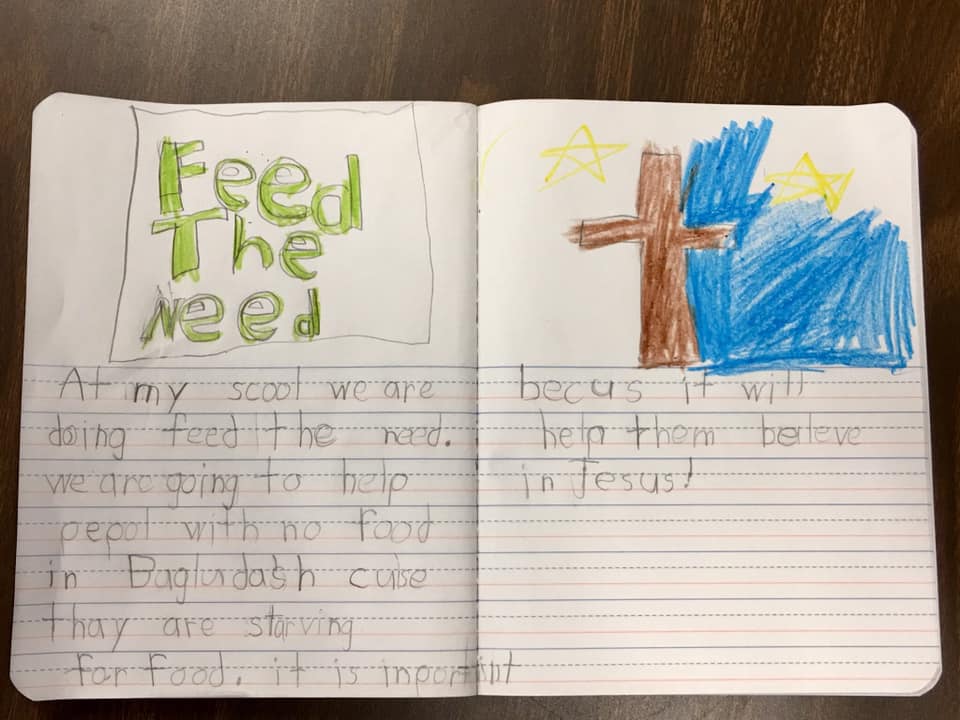 Feed
The
Need
At my scool we are
doing feed the need.
we are going to help
pepol with no food
in Baglurdash cuse
thay are starving
for food. it is inportint
becus it will
help them beleve
in Jesus!